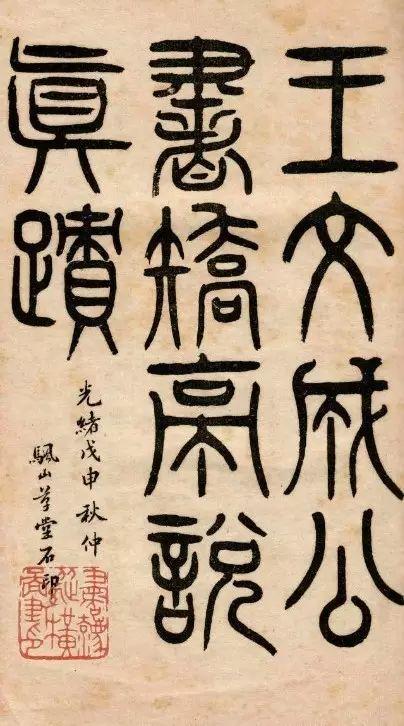 王文成公
書矯亭說
眞蹟
光緒戊申秋仲
山草堂石印